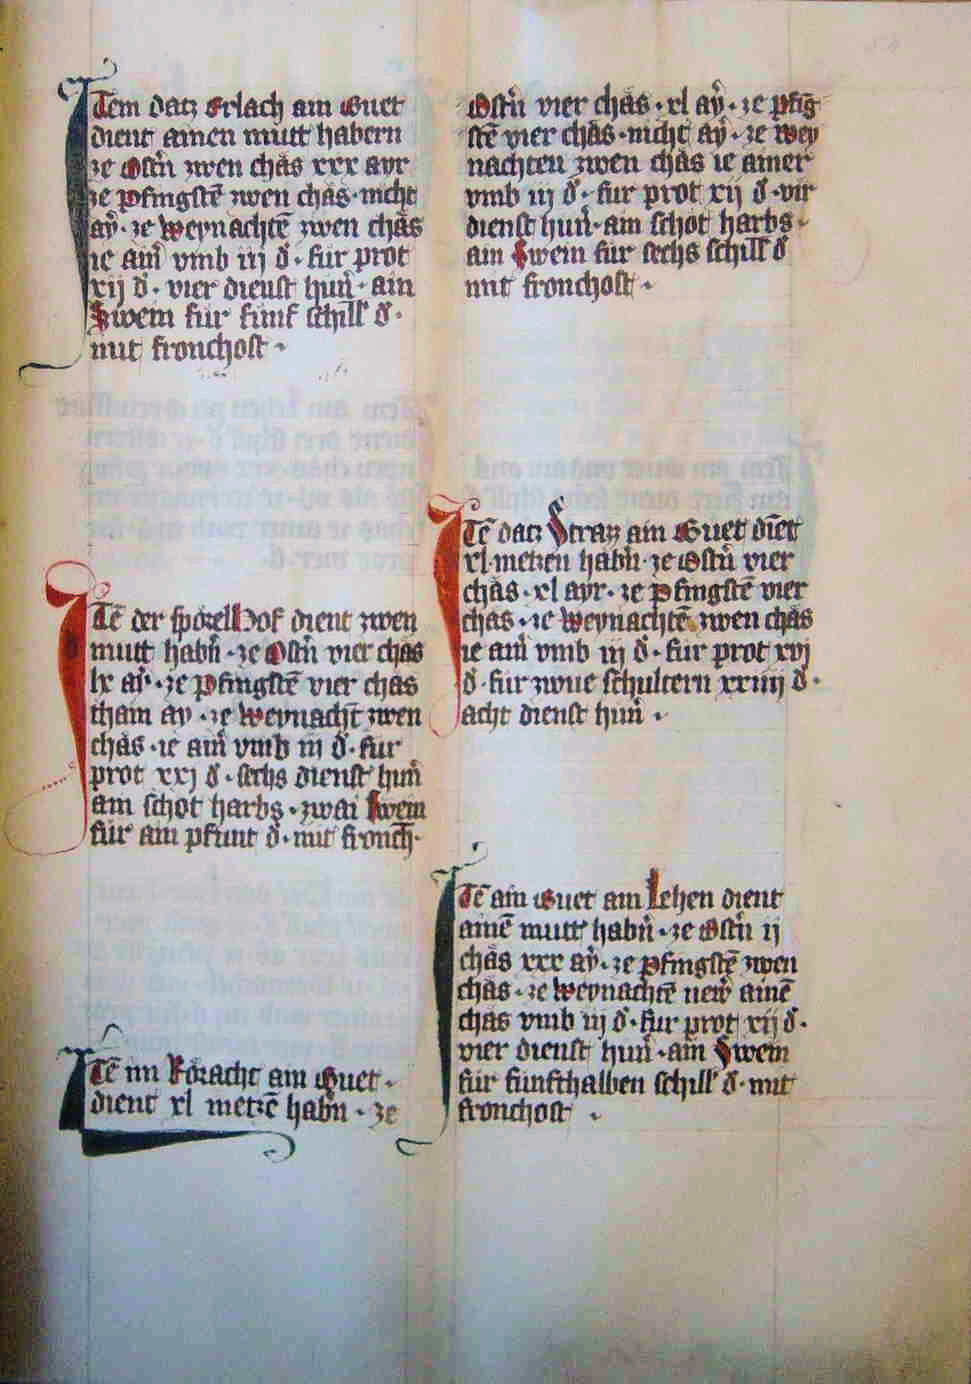 Item datz Erlach ain Guet
dient ainen mutt habern
ze Ostn̄ zwen chäs xxx ayr
ze pfingstē zwen chäs · nicht
aẏ · ze weynachtē zwen chäs
ie ain̄ vmb iij d̄ · für prot
xij d̄ · vier dienst hun̄ · ain
Swein für fünf schill̄ d̄ ·
mit fronchost ·
Itē der spörelhof dient zwen
mutt habn̄ · ze Ostn̄ vier chäs
lx aẏ · ze pfingstē vier chäs
chain ay · ze weynacht̄ zwen
chäs · ie ain̄ vmb iij d̄ · für
prot xxj d̄ · sechs dienst hun̄
ain schot harbs · zwai Swein
für ain pfunt d̄ · mit fronch̄ ·
Itē im Röracht ain Guet ·
dient xl metzē habn̄ · ze
Ostn̄ vier chäs · xl aẏ · ze pfīg
stē vier chäs · nicht aẏ · ze wey
nachten zwen chäs ie ainer
vmb iij d̄ · für prot xij d̄ · vir
dienst hun̄ · ain schot harbs ·
ain Swein für sechs schill̄ d̄
mit fronchost ·
Itē datz Straz ain Guet diēt
xl metzen habn̄ · ze Ostn̄ vier
chäs · xl ayr · ze pfingstē vier
chäs · ze weynachtē zwen chäs
ie ain̄ vmb iij d̄ · für prot xvj
d̄ · für zwue schultern xxiiij d̄ ·
acht dienst hun̄ ·
Itē ain Guet am Lehen dient
ainē mutt habn̄ · ze Ostn̄ ij
chäs xxx aẏ · ze pfingstē zwen
chäs · ze weynachtē newr ainē
chäs vmb iij d̄ · für prot xij d̄ ·
vier dienst hun̄ · ain Swein
für fünfthalben schill̄ d̄ · mit
fronchost ·